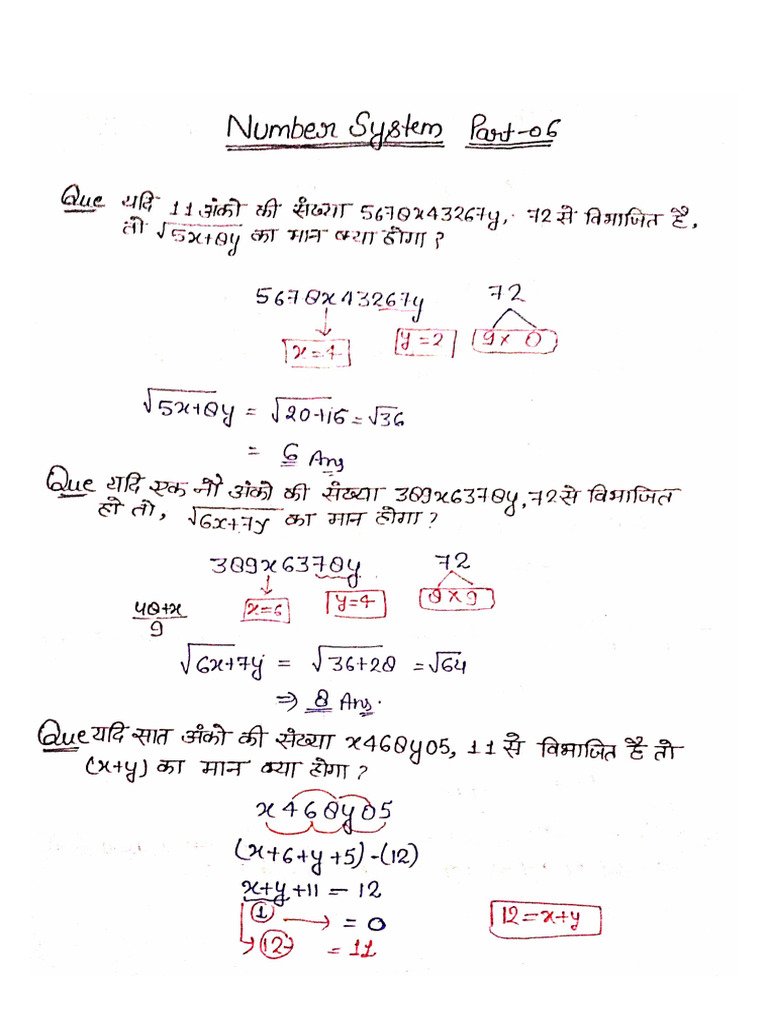 Number System Part-06
Que यदि 11 अंको की संख्या 5678x43267y, 72 से विभाजित है,
तो √5x+8y का मान क्या होगा ?
5678x43267y 72
x=4 y=2 9 x 8
√5x+8y = √20+16 = √36
= 6 Ans
Que यदि एक नौ अंको की संख्या 389x6378y, 72 से विभाजित
हो तो, √6x+7y का मान होगा ?
389x6378y 72
48+x/9 x=6 y=4 8 x 9
√6x+7y = √36+28 = √64
⇒ 8 Ans.
Que यदि सात अंको की संख्या x468y05, 11 से विभाजित है तो
(x+y) का मान क्या होगा ?
x468y05
(x+6+y+5)-(12)
x+y+11-12
1 → = 0 12=x+y
12 = 11